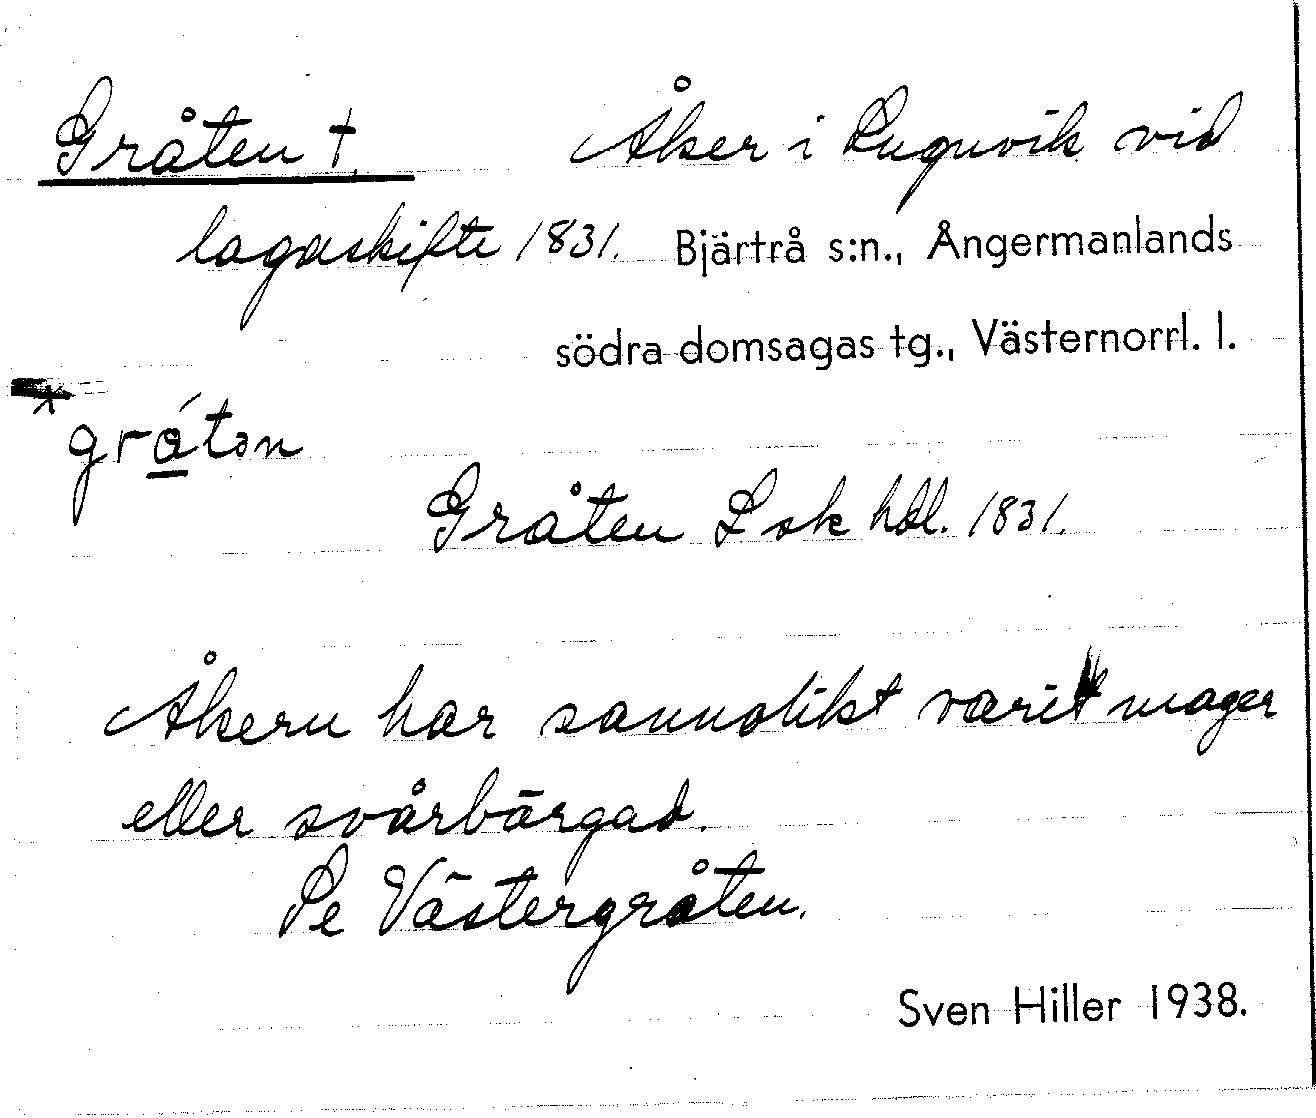 Gråten † Åker i Lugnvik vid
lagaskifte 1831. Bjärtrå s:n., Ångermanlands
södra domsagas tg., Västernorrl. l.
*gró̲tən
Gråten Lsk hdl. 1831.
Åkern har sannolikt varit mager
eller svårbärgad.
Se Västergråten.
Sven Hiller 1938.